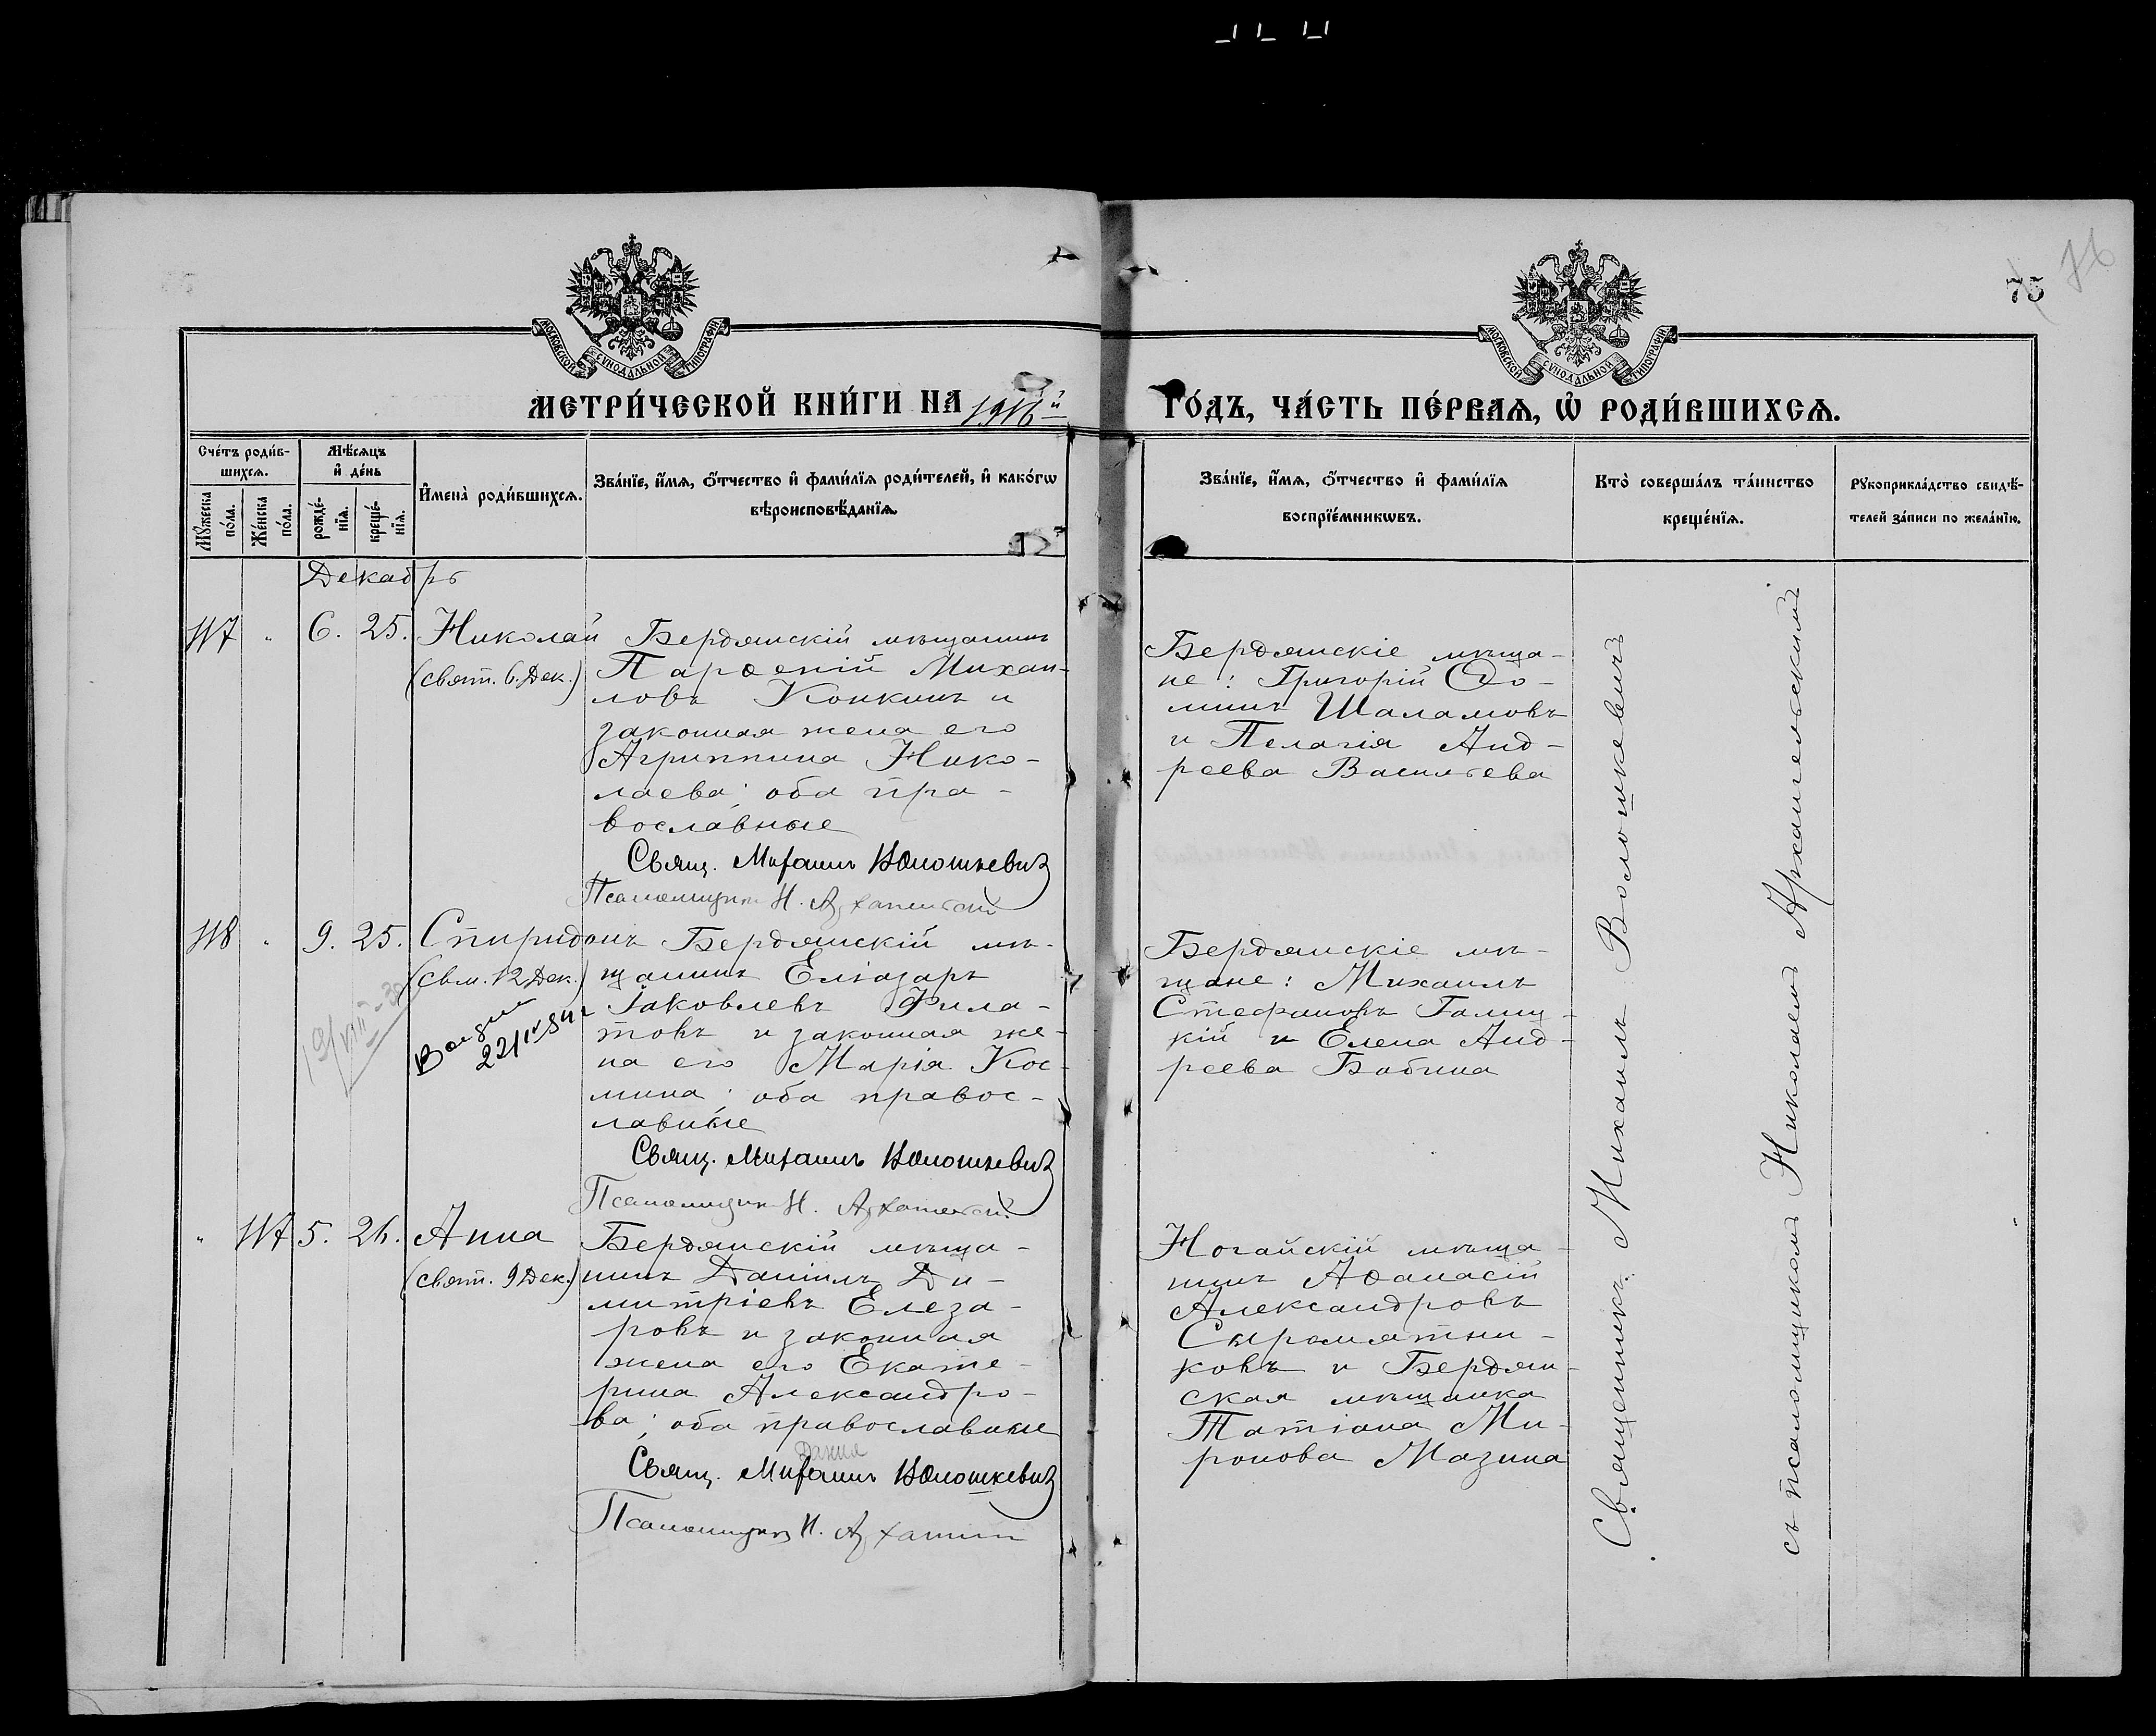 75
76
МОСКОВСКОЙ СѴНОДАЛЬНОЙ ТИПОГРАФІИ.
МОСКОВСКОЙ СѴНОДАЛЬНОЙ ТИПОГРАФІИ.
МЕТРИ́ЧЕСКОЙ КНИ́ГИ НА 1916й ГО́ДЪ, ЧА́СТЬ ПЕ́РВАЯ, Ѡ҆ РОДИ́ВШИХСЯ.
Сче́тъ роди́в-
шихся.
Мꙋ́жеска по́ла.
Же́нска по́ла.
Мѣ́сяцъ
и҆ де́нь
рожде́-
нїя.
креще́-
нїя.
И҆мена̀ роди́вшихся.
Зва́нїе, и҆́мя, ѻ҆́тчество и҆ фами́лїя роди́телей, и҆ како́гѡ
вѣроисповѣ́данїя.
Зва́нїе, и҆́мя, ѻ҆́тчество и҆ фами́лїя
воспрїе́мникѡвъ.
Кто̀ соверша́лъ та́инство
креще́нїя.
Рꙋкоприкла́дство свидѣ́-
телей за́писи по жела́нїю.
Декабрь
117 " 6. 25. Николай
(свят. 6. Дек.)
Бердянскій мѣщанинъ
Парѳеній Михаи-
ловъ Конкинъ и
законная жена его
Агриппина Нико-
лаева; оба пра-
вославные
Свящ. Михаилъ Волошкевичъ
Псаломщикъ Н. Архангельскій
Бердянскіе мѣща-
не: Григорій Ѳо-
минъ Шаламовъ
и Пелагія Анд-
реева Васильева
118 " 9. 25. Спиридонъ
(Свт. 12 Дек.)
22/IV
Бердянскій мѣ-
щанинъ Еліазаръ
Іаковлевъ Фила-
товъ и законная же-
на его Марія Кос-
мина; оба правос-
лавные
Свящ. Михаилъ Волошкевичъ
Псаломщикъ Н. Архангельскій
Бердянскіе мѣ-
щане: Михаилъ
Стефановъ Галиц-
кій и Елена Анд-
реева Бабина
" 117 5. 26. Анна
(свят. 9 Дек.)
Бердянскій мѣща-
нинъ Даніилъ Ди-
митріевъ Елеза-
ровъ и законная
жена его Екате-
рина Александро-
ва; оба православные
Свящ. Михаилъ Волошкевичъ
Псаломщикъ Н. Архангельскій
Ногайскій мѣща-
нинъ Аѳанасій
Александровъ
Сыромятни-
ковъ и Бердян-
ская мѣщанка
Татіана Ми-
ронова Мазина
Священникъ Михаилъ Волошкевичъ
съ псаломщикомъ Николаемъ Архангельскимъ